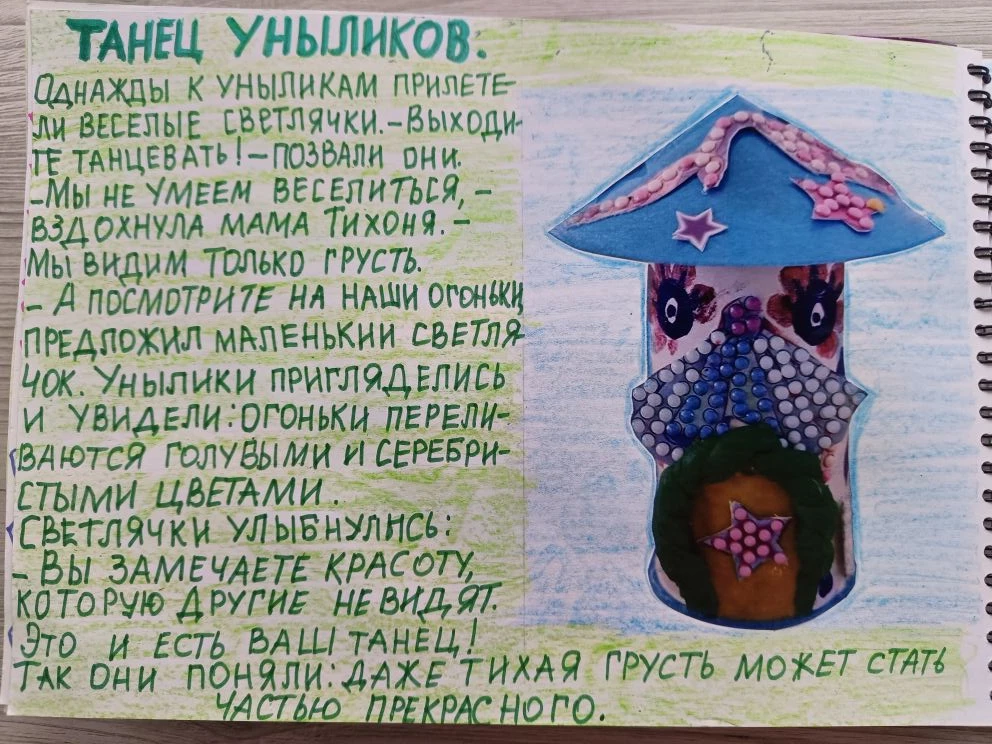 ТАНЕЦ УНЫЛИКОВ:
ОДНАЖДЫ К УНЫЛИКАМ ПРИЛЕТЕ-
ЛИ ВЕСЕЛЫЕ СВЕТЛЯЧКИ.-ВЫХОДИ-
ТЕ ТАНЦЕВАТЬ!-ПОЗВАЛИ ОНИ.
-МЫ НЕ УМЕЕМ ВЕСЕЛИТЬСЯ,-
ВЗДОХНУЛА МАМА ТИХОНЯ.-
МЫ ВИДИМ ТОЛЬКО ГРУСТЬ.
- А ПОСМОТРИТЕ НА НАШИ ОГОНЬКИ
ПРЕДЛОЖИЛ МАЛЕНЬКИЙ СВЕТЛЯ-
ЧОК. УНЫЛИКИ ПРИГЛЯДЕЛИСЬ
И УВИДЕЛИ:ОГОНЬКИ ПЕРЕЛИ-
ВАЮТСЯ ГОЛУБЫМИ И СЕРЕБРИ-
СТЫМИ ЦВЕТАМИ.
СВЕТЛЯЧКИ УЛЫБНУЛИСЬ:
- ВЫ ЗАМЕЧАЕТЕ КРАСОТУ,
КОТОРУЮ ДРУГИЕ НЕ ВИДЯТ.
ЭТО И ЕСТЬ ВАШ ТАНЕЦ!
ТАК ОНИ ПОНЯЛИ: ДАЖЕ ТИХАЯ ГРУСТЬ МОЖЕТ СТАТЬ
ЧАСТЬЮ ПРЕКРАСНОГО.